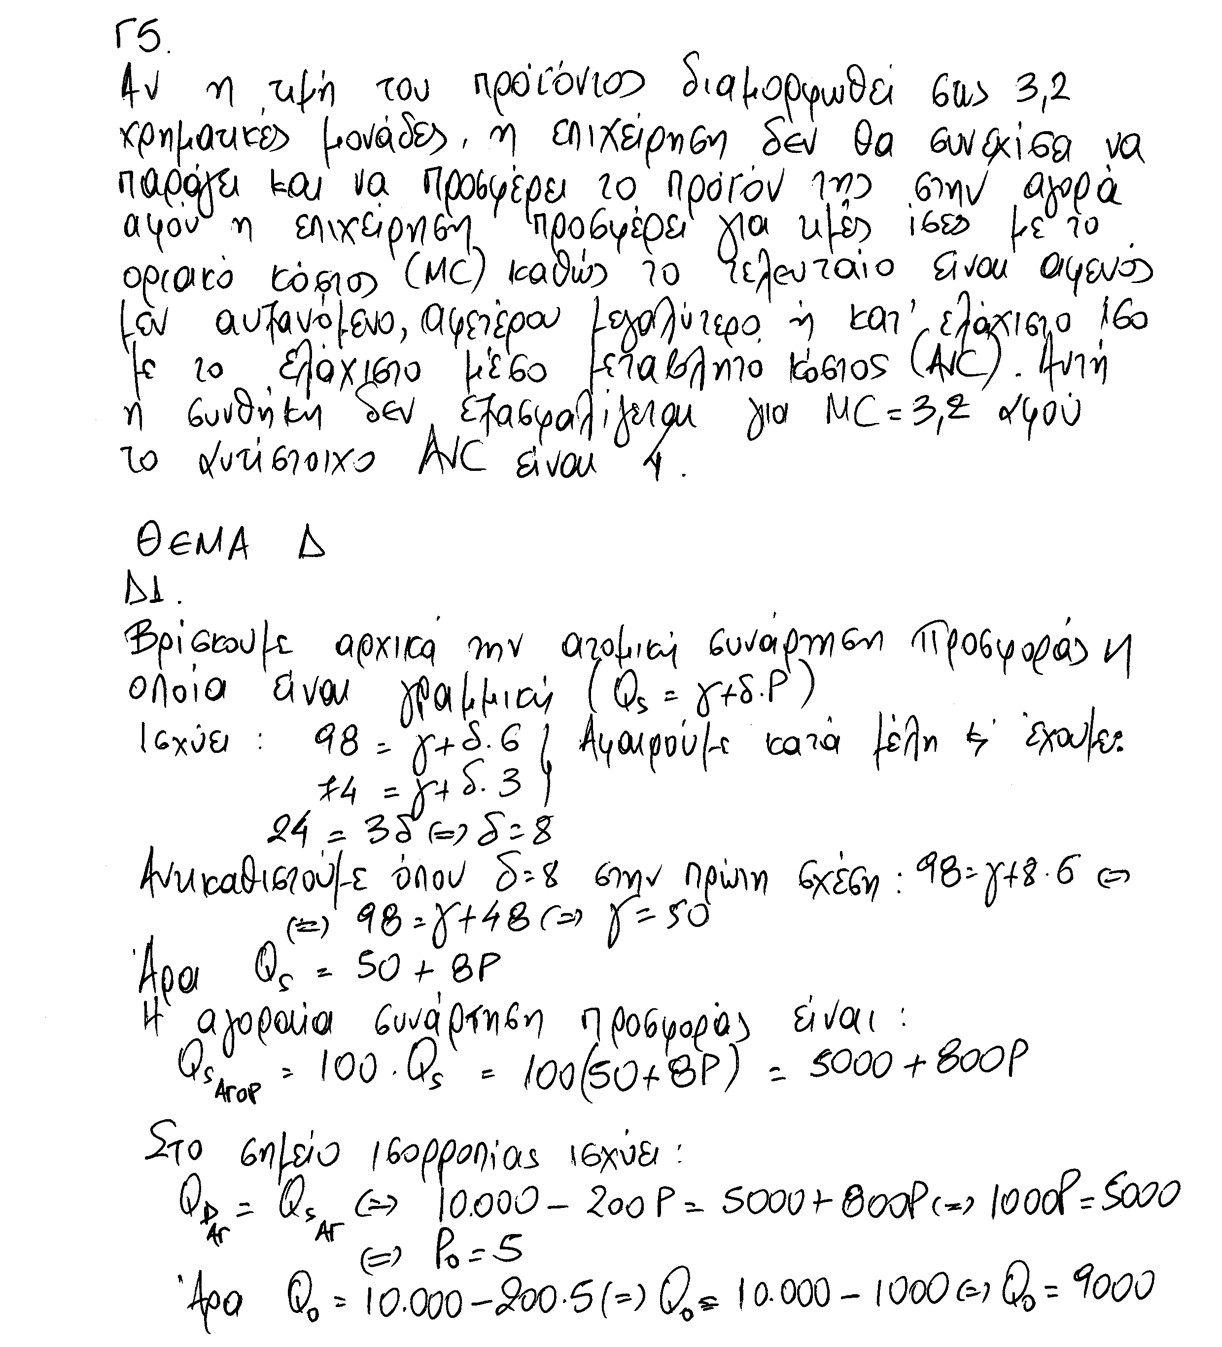 Γ5.
Αν η τιμή του προϊόντος διαμορφωθεί στις 3,2
χρηματικές μονάδες, η επιχείρηση δεν θα συνεχίσει να
παράγει και να προσφέρει το προϊόν της στην αγορά
αφού η επιχείρηση προσφέρει για τιμές ίσες με το
οριακό κόστος (MC) καθώς το τελευταίο είναι αφενός
μεν αυξανόμενο, αφετέρου μεγαλύτερο ή κατ' ελάχιστο ίσο
με το ελάχιστο μέσο μεταβλητό κόστος (AVC). Αυτή
η συνθήκη δεν εξασφαλίζεται για MC = 3,2 αφού
το αντίστοιχο AVC είναι 4.
ΘΕΜΑ Δ
Δ1.
Βρίσκουμε αρχικά την ατομική συνάρτηση προσφοράς η
οποία είναι γραμμική (Qs = γ+δ.P)
Ισχύει : 98 = γ+δ.6 } Αφαιρούμε κατά μέλη & έχουμε:
74 = γ+δ.3
24 = 3δ <=> δ=8
Αντικαθιστούμε όπου δ=8 στην πρώτη σχέση : 98=γ+8.6 <=>
<=> 98=γ+48 <=> γ=50
Άρα Qs = 50 + 8P
Η αγοραία συνάρτηση προσφοράς είναι :
Qs ΑΓΟΡ = 100 . Qs = 100(50+8P) = 5000 + 800P
Στο σημείο ισορροπίας ισχύει :
QD ΑΓ = Qs ΑΓ <=> 10.000 - 200P = 5000 + 800P <=> 1000P = 5000
<=> Po = 5
Άρα Qo = 10.000 - 200.5 <=> Qo = 10.000 - 1000 <=> Qo = 9000